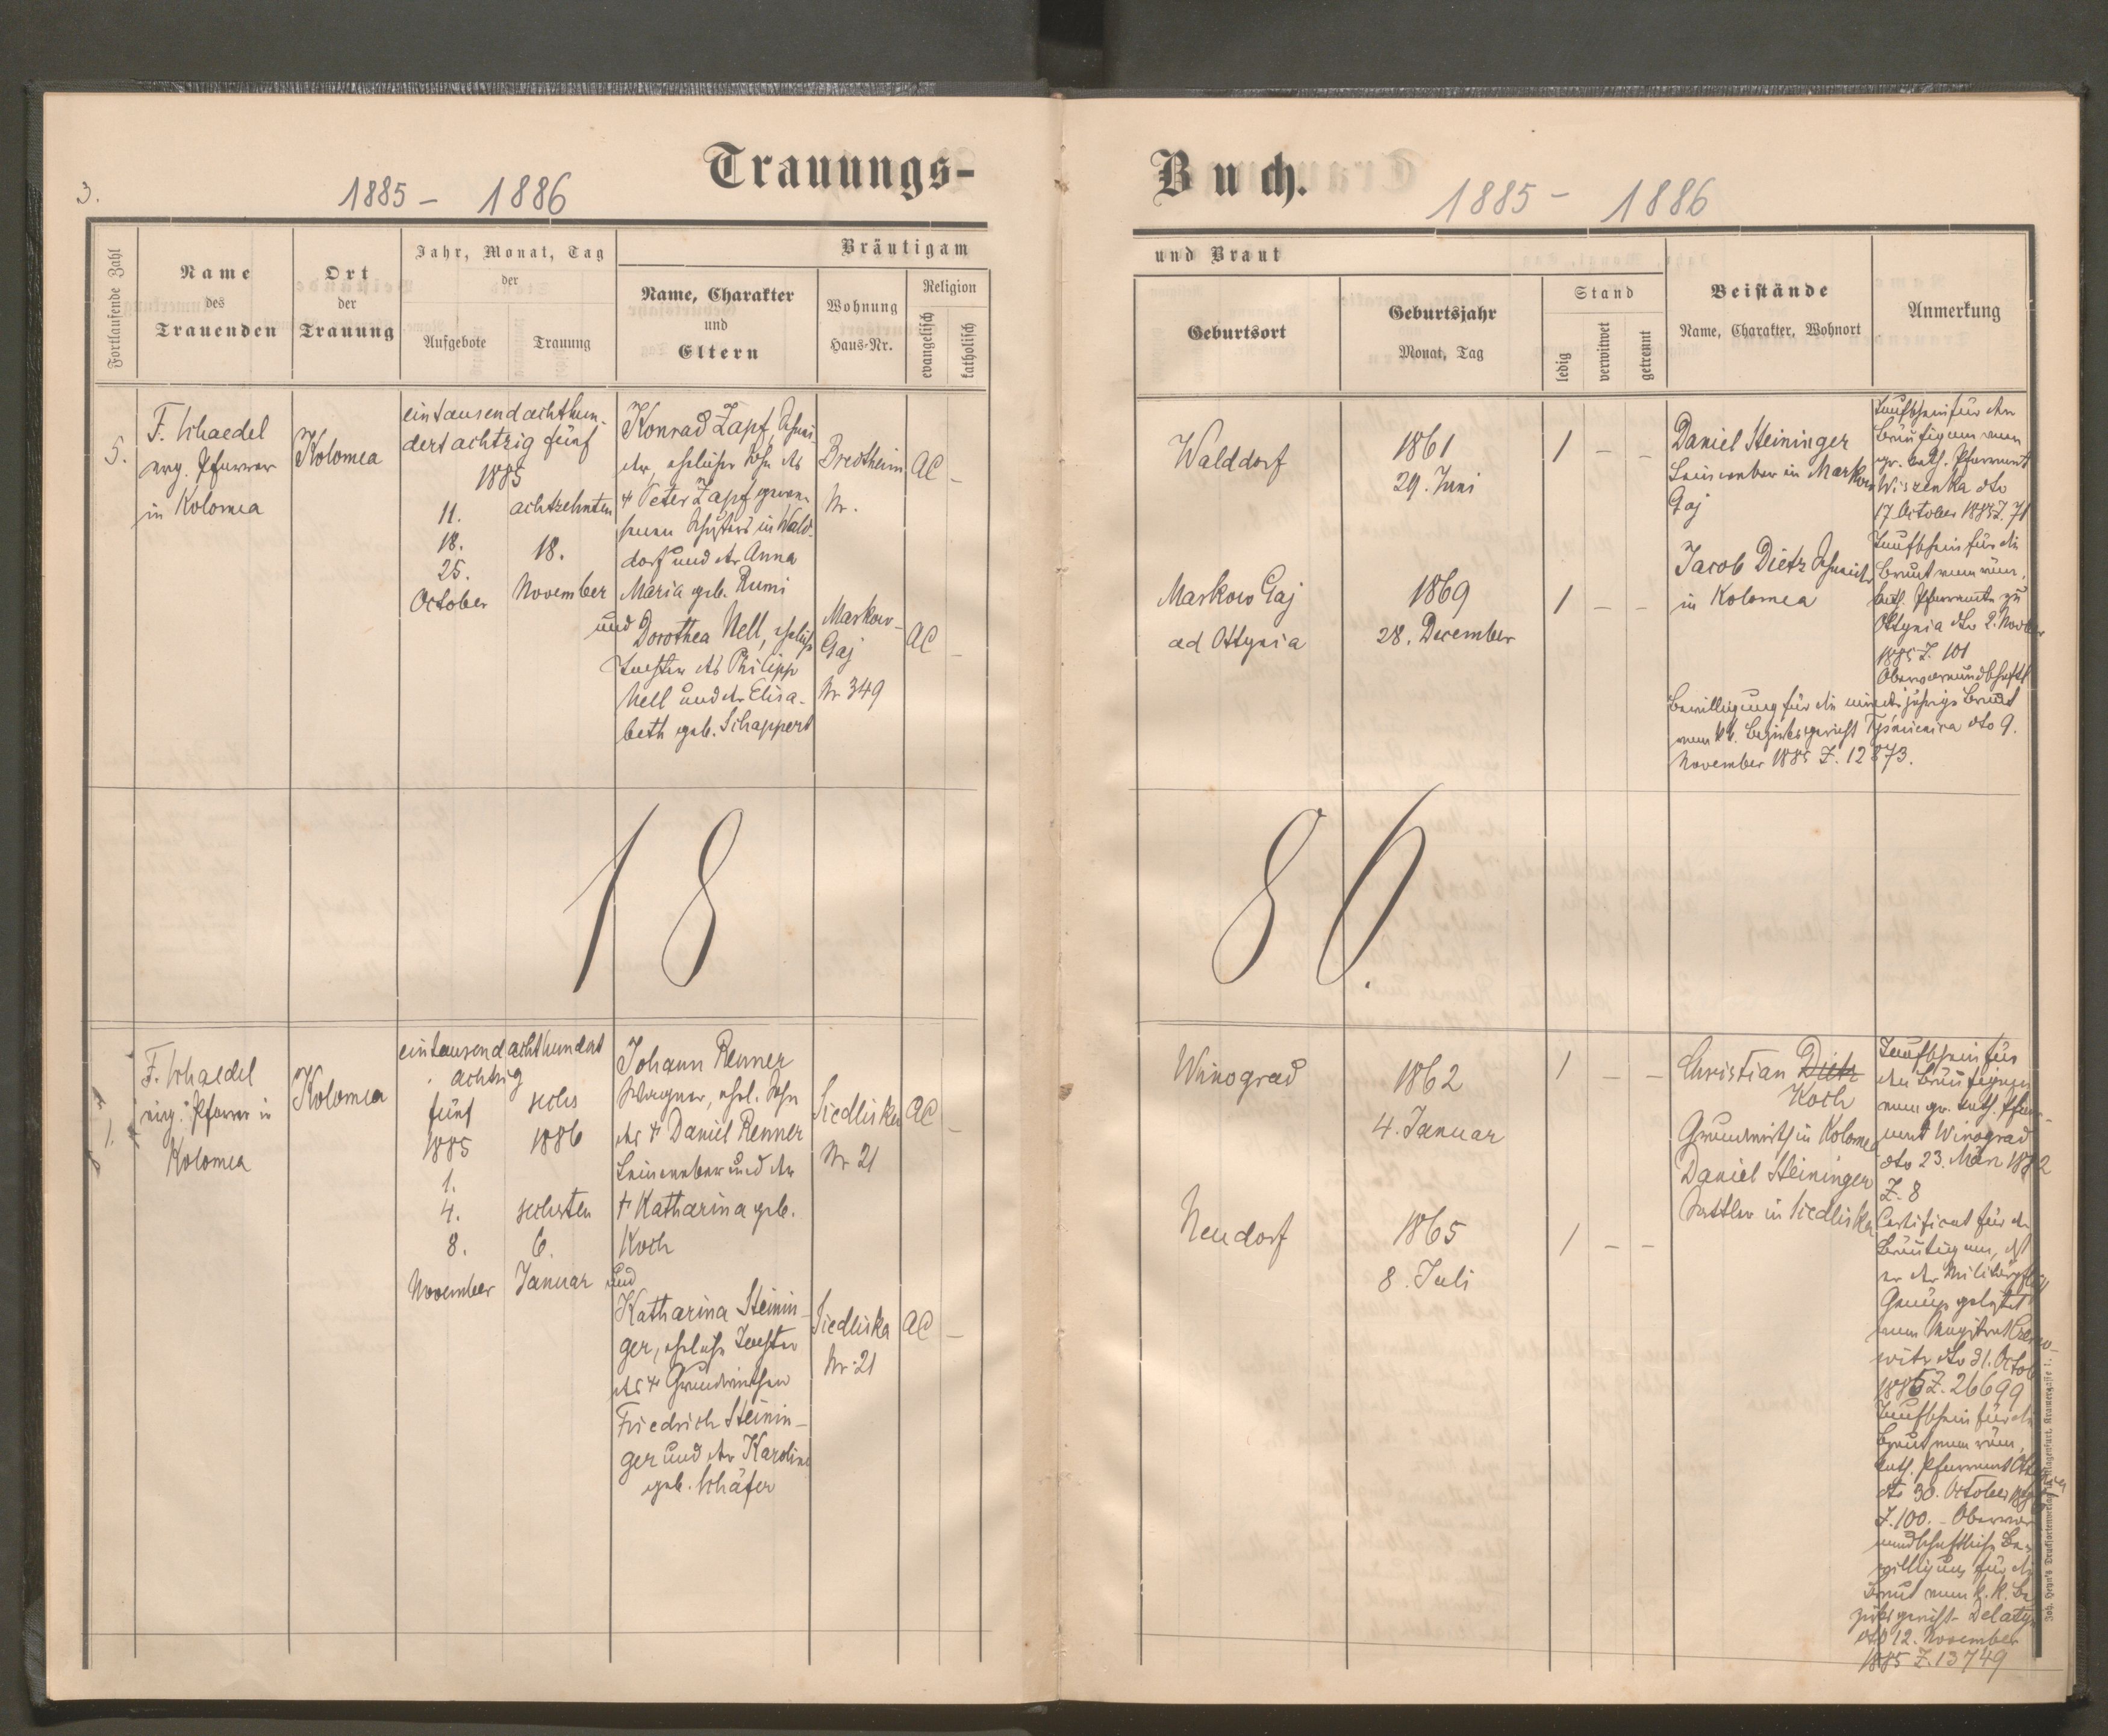 3.
1885 - 1886
Trauungs-
Fortlaufende Zahl
Name
des
Trauenden
Ort
der
Trauung
Jahr, Monat, Tag
der
Aufgebote
Trauung
Bräutigam
Name, Charakter
und
Eltern
Wohnung
Haus-Nr.
Religion
evangelisch
katholisch
5.
F. Schaedel
evg. Pfarrer
in Kolomea
Kolomea
eintausendachthun-
dertachtzig fünf
1885
11.
18.
25.
October
achtzehnten
18.
November
Konrad Zapf, Schnei-
der, ehelicher Sohn des
† Peter Zapf gewe-
senen in Wald-
dorf und der Anna
Maria geb. Rumi
und Dorothea Nell, ehliche
Tochter des Philipp
Nell und der Elisa-
beth geb. Schappert
Bredtheim
Nr.
AC
-
Markow-
Gaj
Nr 349
AC
-
18
1.
F. Schaedel
evg. Pfarrer in
Kolomea
Kolomea
eintausendachthundert
achtzig
fünf sechs
1885 1886
1.
4.
8.
November
sechsten
6.
Januar
Johann Renner
Wagner, ehel. Sohn
des † Daniel Renner
Leinweber und der
† Katharina geb.
Koch
und
Katharina Steinin-
ger, eheliche Tochter
des † Grundwirthen
Friedrich Steinin-
ger und der Karoline
geb. Schäfer
Siedliska
Nr 21
AC
-
Siedliska
Nr. 21
AC
-
Buch.
1885 - 1886
und Braut
Geburtsort
Geburtsjahr
Monat, Tag
Stand
ledig
verwitwet
getrennt
Beistände
Name, Charakter, Wohnort
Anmerkung
Walddorf
1861
29. Juni
1 - -
Markow Gaj
ad Ottynia
1869
28. December
1 - -
Daniel Steininger
Leinweber in Markow
Gaj
Jacob Dietz Schneider
in Kolomea
Taufschein für den
Bräutigam vom
gr. kath. Pfarramt
Wiszenka dto
17 October 1885 Z. 71
Taufschein für die
Braut vom röm.
kath. Pfarramte zu
Ottynia dto 2. November
1885 Z. 101
Obervormundschaftl.
Bewilligung für die minderjährige Braut
vom k.k. Bezirksgericht Tyśmienica dto 9.
November 1885 Z. 12873.
86.
Winograd
1862
4. Januar
1 - -
Neudorf
1865
8. Juli
1 - -
Christian Dietz
Koch
Grundwirth in Kolomea
Daniel Steininger
Sattler in Siedliska
Taufschein für
den Bräutigam
vom gr. kath. Pfarr-
amt Winograd
dto 23. März 1882
Z. 8
Certificat für den
Bräutigam, daß
er der Militärpflicht
Genüge geleistet
vom Magistrat Czerno-
witz dto 31. October
1885 Z. 26699
Taufschein für die
Braut vom röm.
kath. Pfarramt Ottynia
dto 30. October 1885
Z. 100. - Obervor-
mundschaftliche Be-
willigung für die
Braut vom k.k. Be-
zirksgericht Delatyn
dto 12. November
1885 Z. 13749